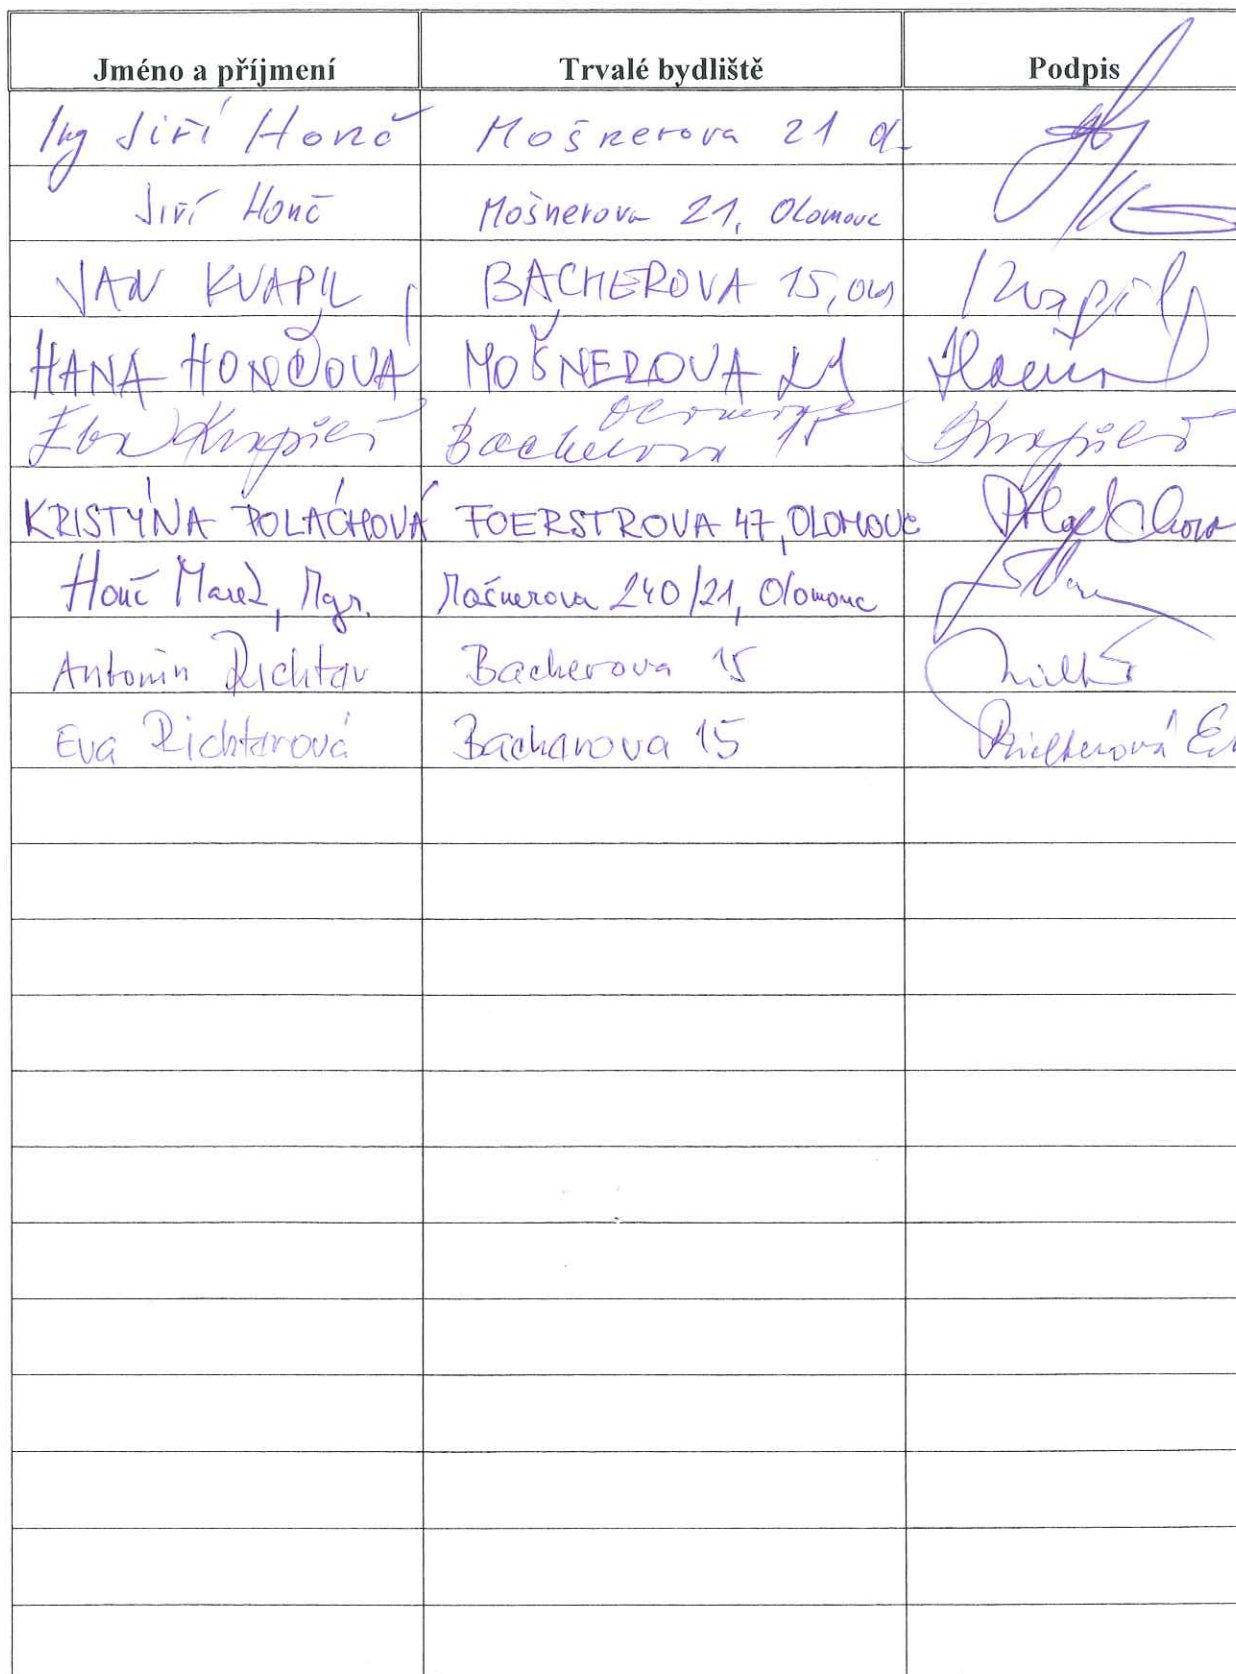 Jméno a příjmení Trvalé bydliště Podpis
Ing Jiří Honč Mošnerova 21 Ol
Jiří Honč Mošnerova 21, Olomouc
JAN KVAPIL BACHEROVA 15, OM Kvapil
HANA HONČOVÁ MOŠNEROVA 21
Olomouc
Bacherova 15
KRISTÝNA POLÁCHOVÁ FOERSTROVA 47, OLOMOUC
Honč Marek, Mgr. Mošnerova 240/21, Olomouc
Antonín Richtar Bacherova 15
Eva Richtarová Bacherova 15 Richterová E